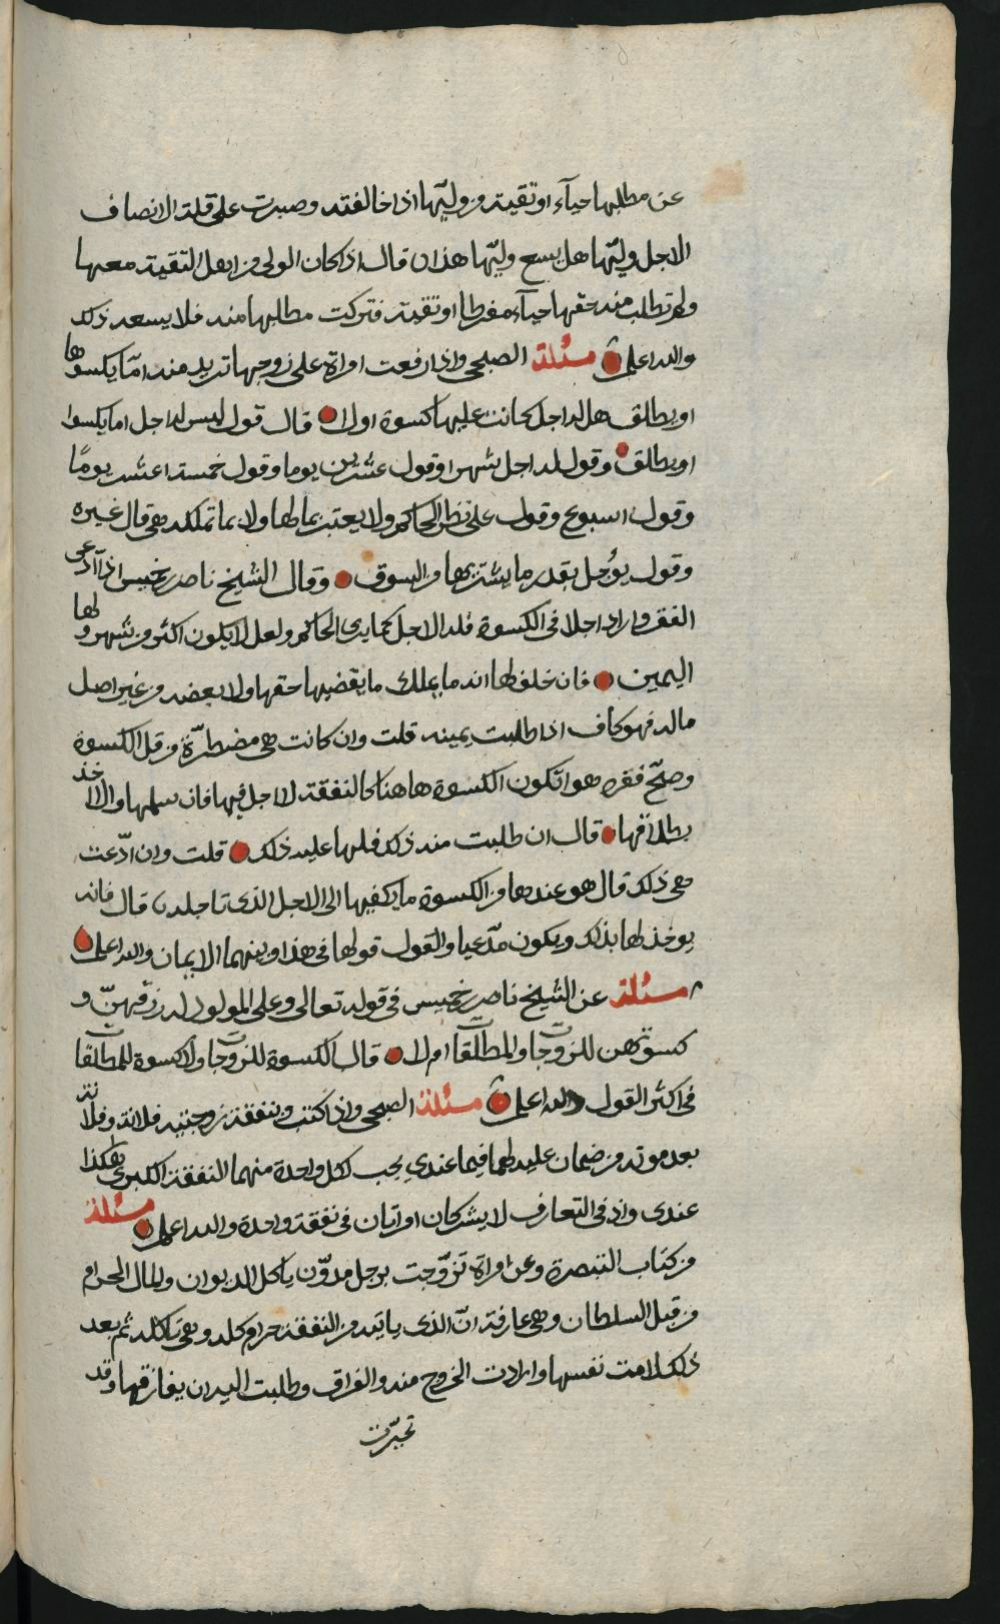 عن مطلبها حيآء او تقية من وليّها اذا خالفته وصبرت على قلة الانصاف
الاجل وليّها هل يسع وليّها هذا ام قال اذا كان الولي من اهل التقية معها
ولم تطلب منه حقها حيآء مفرطا او تقية فتركت مطلبها منه فلا يسعه ذلك
والله اعلم مسئلة الصبحي واذا رفعت امراة على زوجها تريد منه امّا يكسوها
او يطلق هل له اجل كانت عليها كسوة او لا قال قول ليس له اجل اما يكسوا
او يطلق وقول له اجل شهرا وقول عشرين يوما وقول خمسة اعشر يومًا
وقول اسبوع وقول على نظر الحاكم ولا يعتبر بمالها ولا بما تملكه هي قال غيره
وقول يوُجل بقدر ما يشتريها من السوق وقال الشيخ ناصر بن خميس اذا ادّعى
الفقر واراد اجلا في الكسوة فله الاجل كما يرى الحاكم ولعل لا يكون اكثر من شهر ولها
اليمين فان حلف لها انه ما يملك ما يقضيها حقها ولا بعضه من غير اصل
ماله فهو كاف اذا طلبت يمينه قلت وان كانت هي مضطرّة من قبل الكسوة
وصحّ فقره هو اتكون الكسوة هاهنا كالنفقة لا اجل فيها فان سلمها والا اخذ
بطلاقها قال ان طلبت منه ذلك فلها عليه ذلك قلت وان ادّعت
هي ذلك قال هو عندها من الكسوة ما يكفيها الى الاجل الذي تاجله قال فانه
يوخذ لها بذلك ويكون مدّعيا والقول قولها في هذا وبينهما الايمان والله اعلم
مسئلة عن الشيخ ناصر بن خميس في قوله تعالى وعلى المولود له رزقهنّ و
كسوتهن للزوجات والمطلقات ام لا قال الكسوة للزوجات ولا كسوة للمطلقات
في اكثر القول والله اعلم مسئلة الصبحي واذا كتب بنفقة زوجتيه فلانة وفلانة
بعد موته من ضمان عليه لهما فيما عندي يجب لكل واحدة منهما النفقة الكبرى هكذا
عندي واذ في التعارف لا يشركان امراتان في نفقة واحدة والله اعلم مسئلة
من كتاب التبصرة وعن امراة تزوّجت برجل مدوّن ياكل الديوان والمال الحرام
من قبل السلطان وهي عارفة انّ الذي ياتيه من النفقة حرام كله وهي تاكله ثم بعد
ذلك لامت نفسها وارادت الخروج منه والفراق وطلبت اليه ان يفارقها وقد
تحيّرت